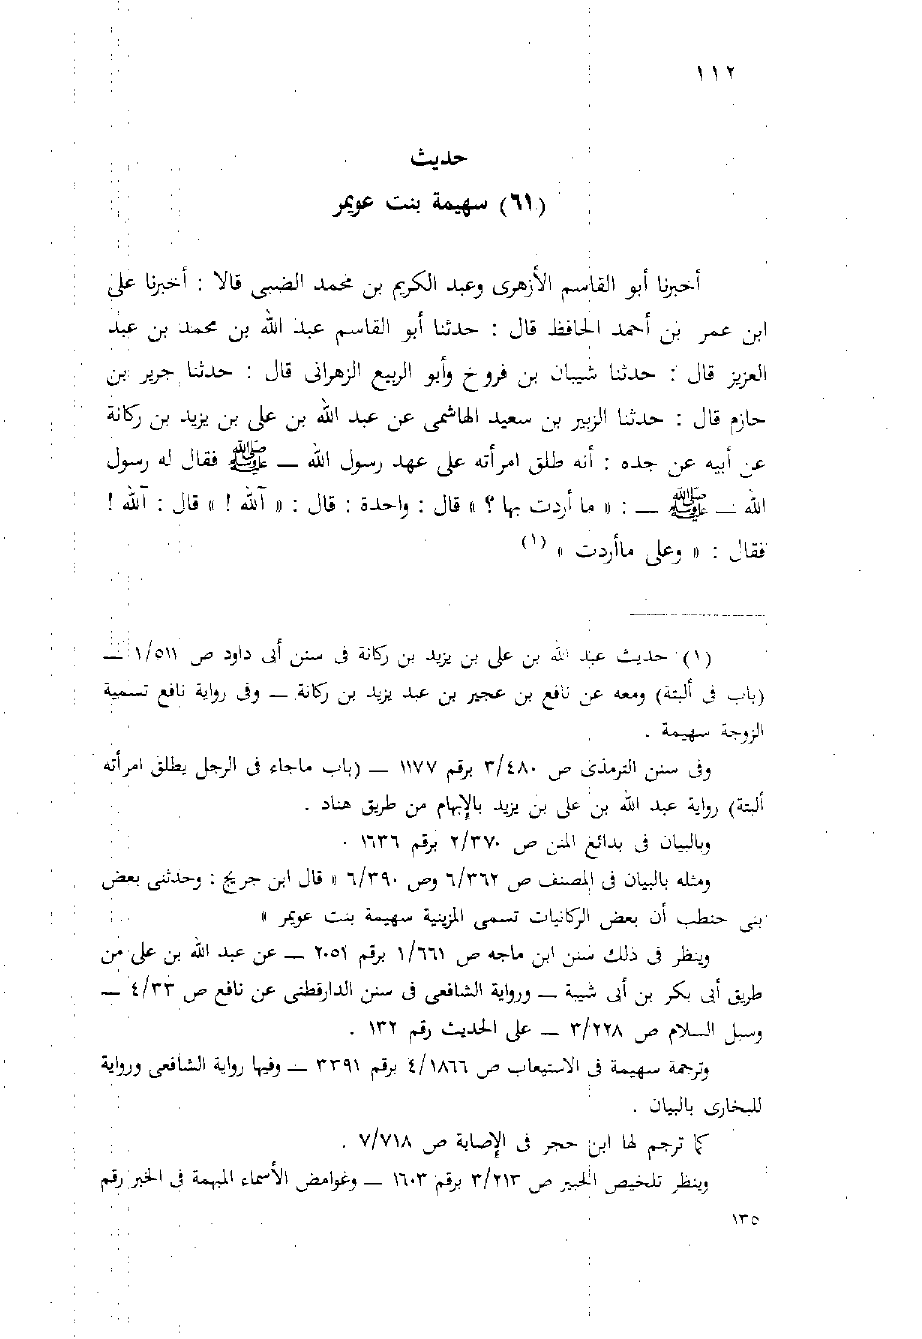 ١١٢
حديث
(٦١) سهيمة بنت عويمر
أخبرنا أبو القاسم الأزهرى وعبد الكريم بن محمد الضبى قالا : أخبرنا على
ابن عمر بن أحمد الحافظ قال : حدثنا أبو القاسم عبد الله بن محمد بن عبد
العزيز قال : حدثنا شيبان بن فروخ وأبو الربيع الزهرانى قال : حدثنا جرير بن
حازم قال : حدثنا الزبير بن سعيد الهاشمى عن عبد الله بن على بن يزيد بن ركانة
عن أبيه عن جده : أنه طلق امرأته على عهد رسول الله — ﷺ فقال له رسول
الله — ﷺ — : « ما أردت بها ؟ » قال : واحدة : قال : « آلله ! » قال : آلله !
فقال : « وعلى ماأردت » (١)
(١) حديث عبد الله بن على بن يزيد بن ركانة فى سنن أبى داود ص ١/٥١١ —
(باب فى ألبتة) ومعه عن نافع بن عجير بن عبد يزيد بن ركانة — وفى رواية نافع تسمية
الزوجة سهيمة .
وفى سنن الترمذى ص ٣/٤٨٠ برقم ١١٧٧ — (باب ماجاء فى الرجل يطلق امرأته
ألبتة) رواية عبد الله بن على بن يزيد بالإبهام من طريق هناد .
وبالبيان فى بدائع المنن ص ٢/٣٧٠ برقم ١٦٣٦ .
ومثله بالبيان فى المصنف ص ٦/٣٦٢ وص ٦/٣٩٠ « قال ابن جريج : وحدثنى بعض
بنى حنطب أن بعض الركانيات تسمى المزينية سهيمة بنت عويمر »
وينظر فى ذلك سنن ابن ماجه ص ١/٦٦١ برقم ٢٠٥١ — عن عبد الله بن على من
طريق أبى بكر بن أبى شيبة — ورواية الشافعى فى سنن الدارقطنى عن نافع ص ٤/٣٣ —
وسبل السلام ص ٣/٢٢٨ — على الحديث رقم ١٣٢ .
وترجمة سهيمة فى الاستيعاب ص ٤/١٨٦٦ برقم ٣٣٩١ — وفيها رواية الشافعى ورواية
للبخارى بالبيان .
كما ترجم لها ابن حجر فى الإصابة ص ٧/٧١٨ .
وينظر تلخيص الحبير ص ٣/٢١٣ برقم ١٦٠٣ — وغوامض الأسماء المبهمة فى الخبر رقم
١٣٥